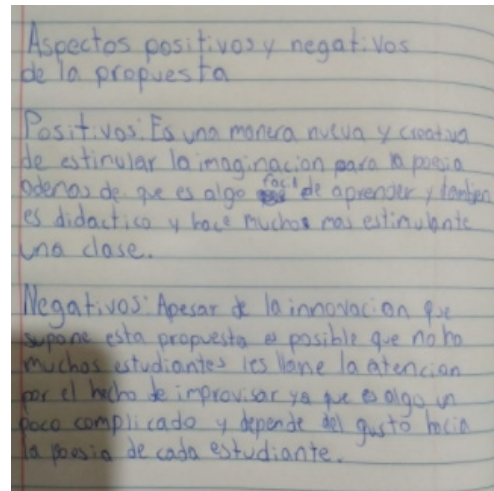 Aspectos positivos y negativos
de la propuesta
Positivos: Es una manera nueva y creativa
de estimular la imaginacion para la poesia
ademas de que es algo facil de aprender y tambien
es didactico y hace mucho mas estimulante
una clase.
Negativos: Apesar de la innovacion que
supone esta propuesta es posible que no ha
muchos estudiantes les llame la atencion
por el hecho de improvisar ya que es algo un
poco complicado y depende del gusto hacia
la poesia de cada estudiante.